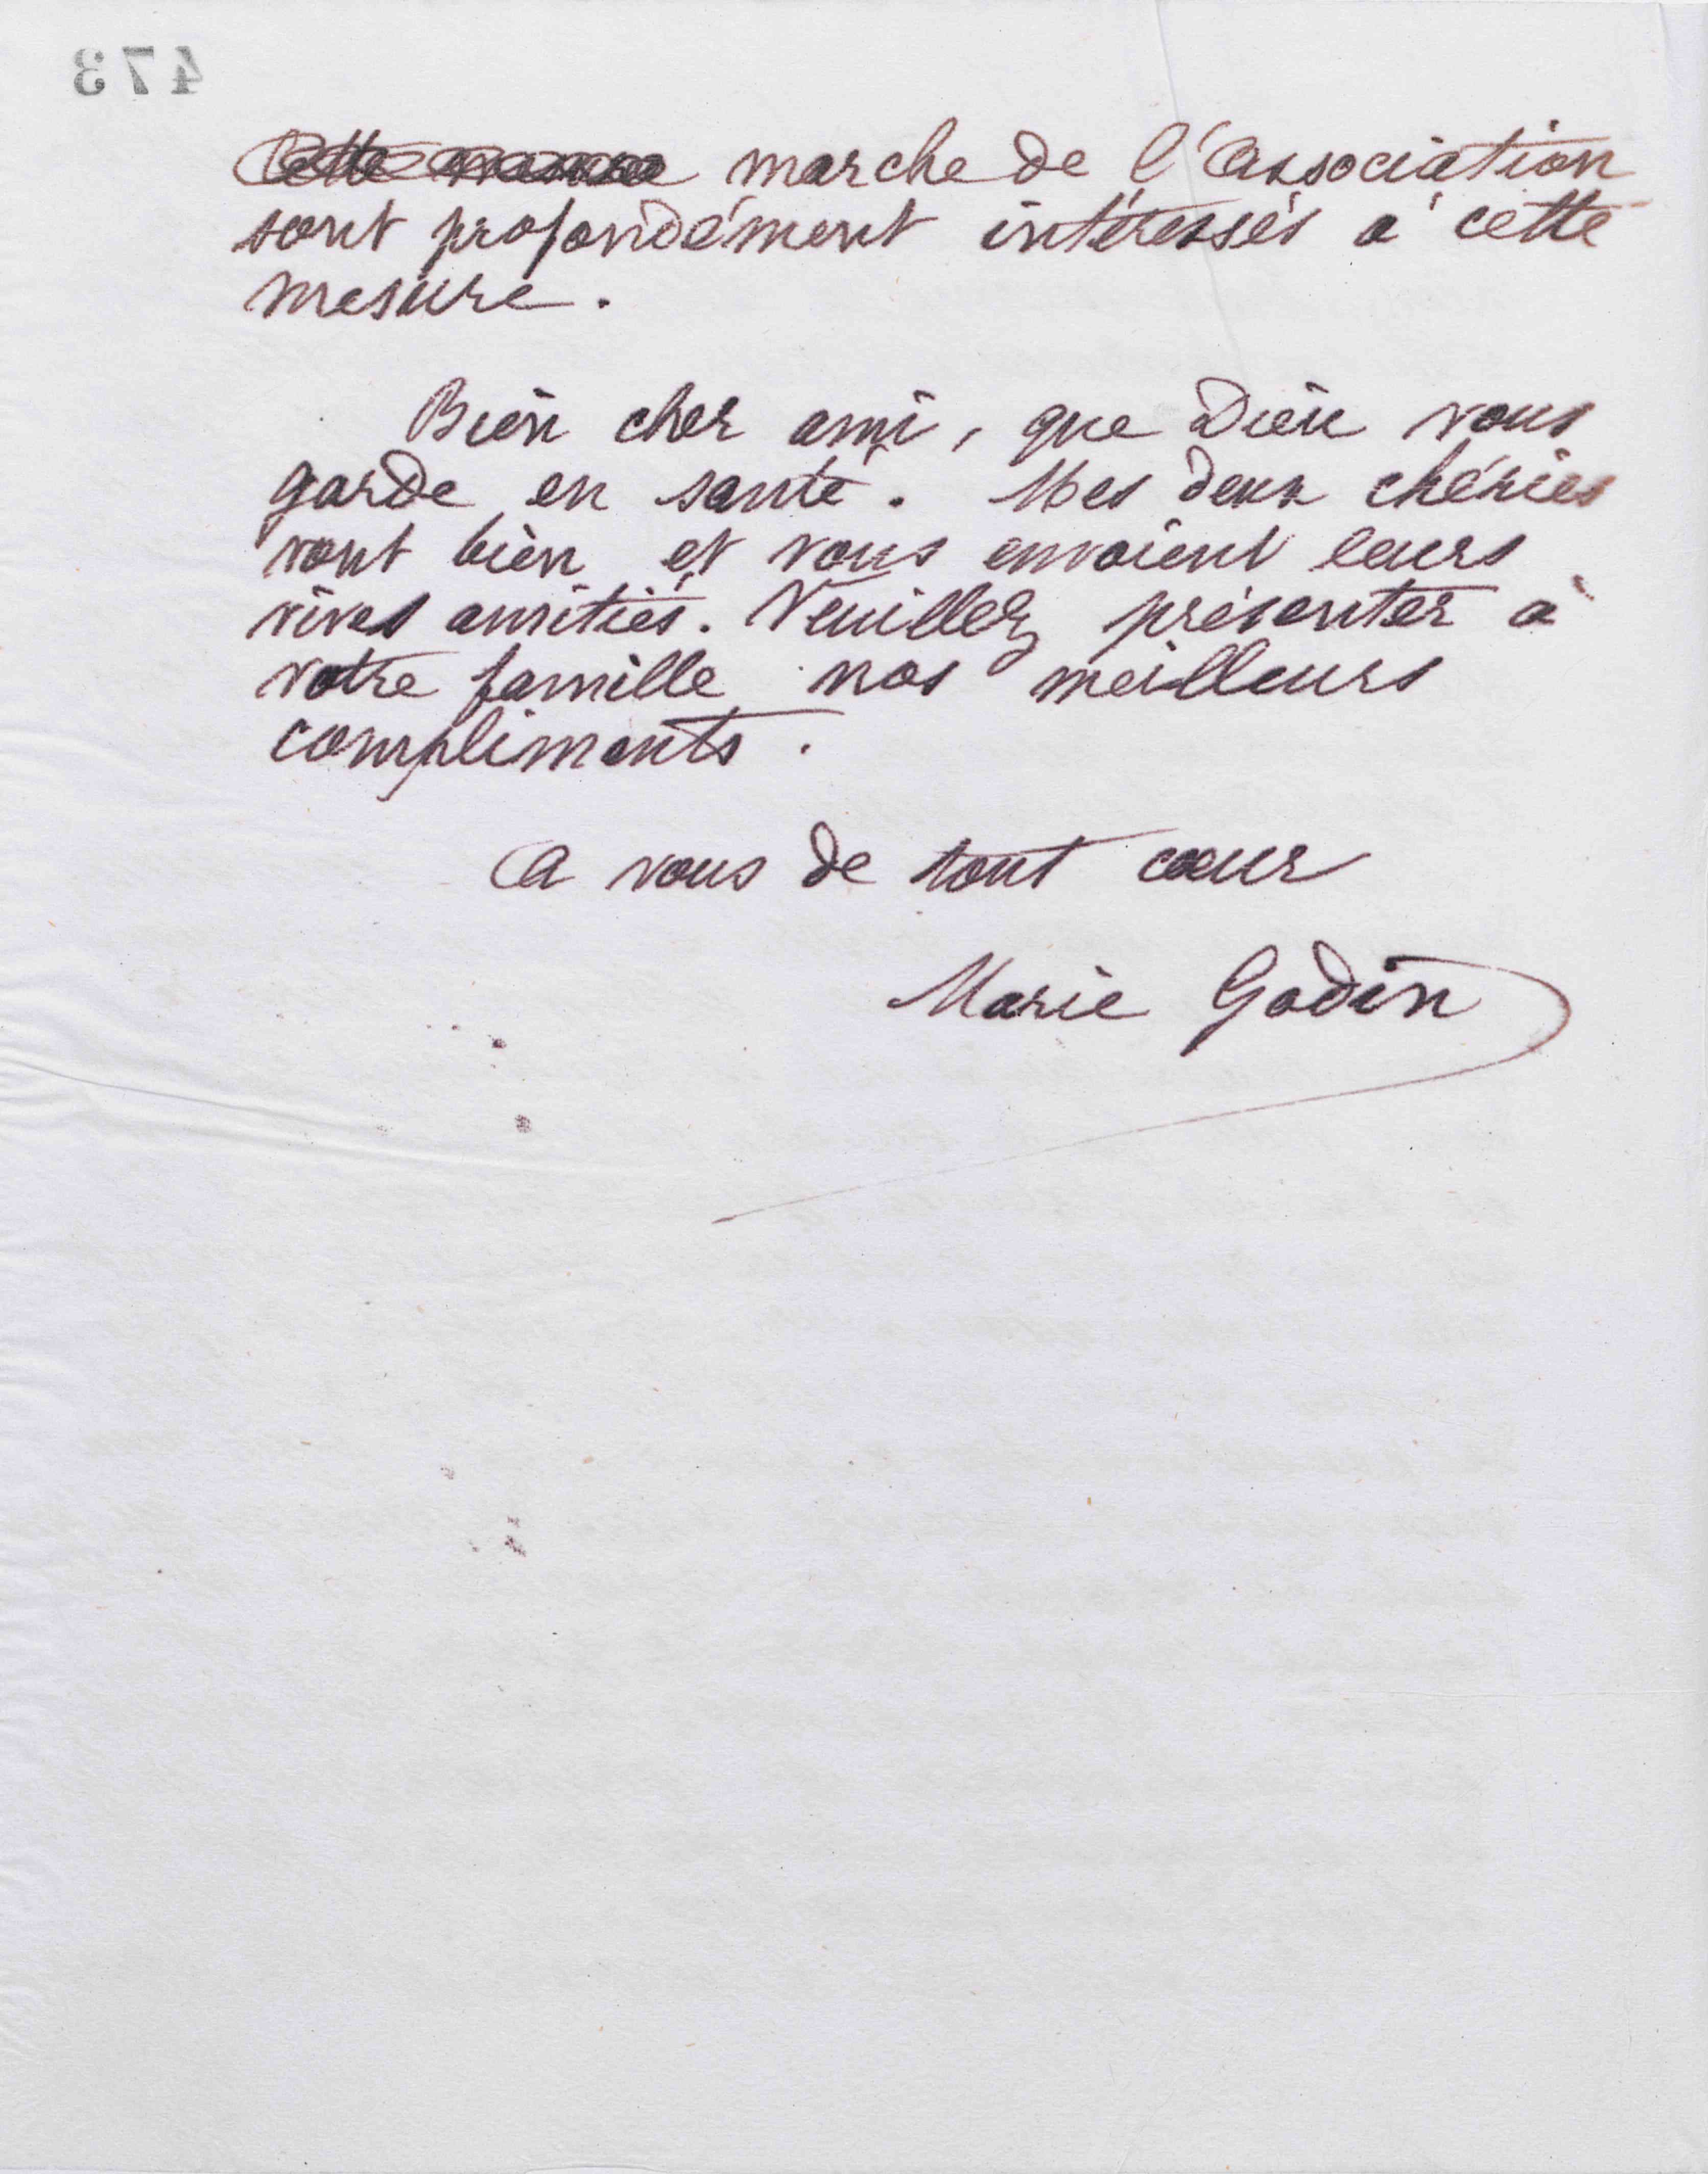 473
marche de l'Association
sont profondément intéressés à cette
mesure.
Bien cher ami, que Dieu vous
garde en santé. Mes deux chéries
vont bien et vous envoient leurs
vives amitiés. Veuillez présenter à
votre famille nos meilleurs
compliments.
A vous de tout cœur
Marie Godin